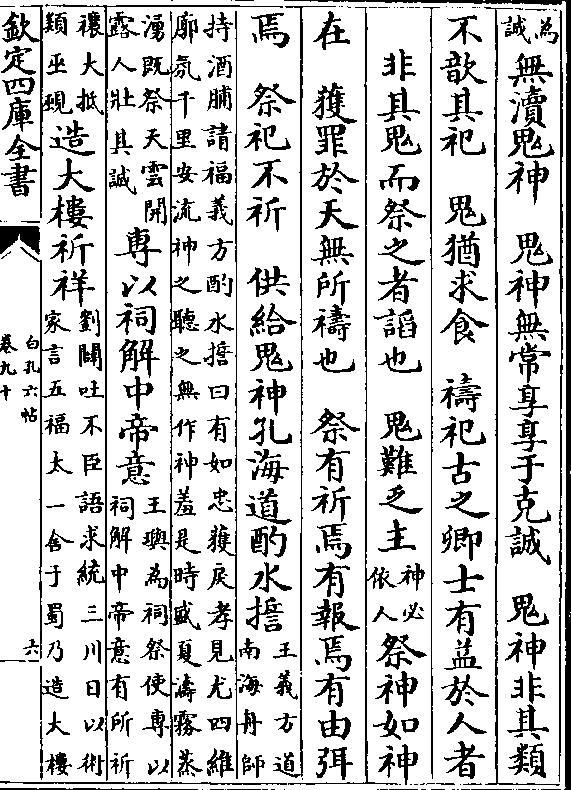 為誠無瀆鬼神　鬼神無常享享于克誠　鬼神非其類
不歆其祀　鬼猶求食　禱祀古之卿士有益於人者
非其鬼而祭之者謟也　鬼難乏主神必依人祭神如神
在　獲罪於天無所禱也　祭有祈焉有報焉有由弭
焉　祭祀不祈　供給鬼神孔海道酌水擔王義方道南海舟師
持酒脯請福義方酌水擔曰有如忠獲戾孝見尤四維
廓氛千里安流神之聽之無作神羞是時盛夏濤霧蒸
湧既祭天雲開露人壯其誠專以祠解中帝意王璵為祠祭使專以祠解中帝意有所祈
禳大抵類巫覡造大樓祈祥劉闢吐不臣語求統三川日以術家言五福太一舍于蜀乃造大樓
欽定四庫全書
白孔六帖
卷九十
六